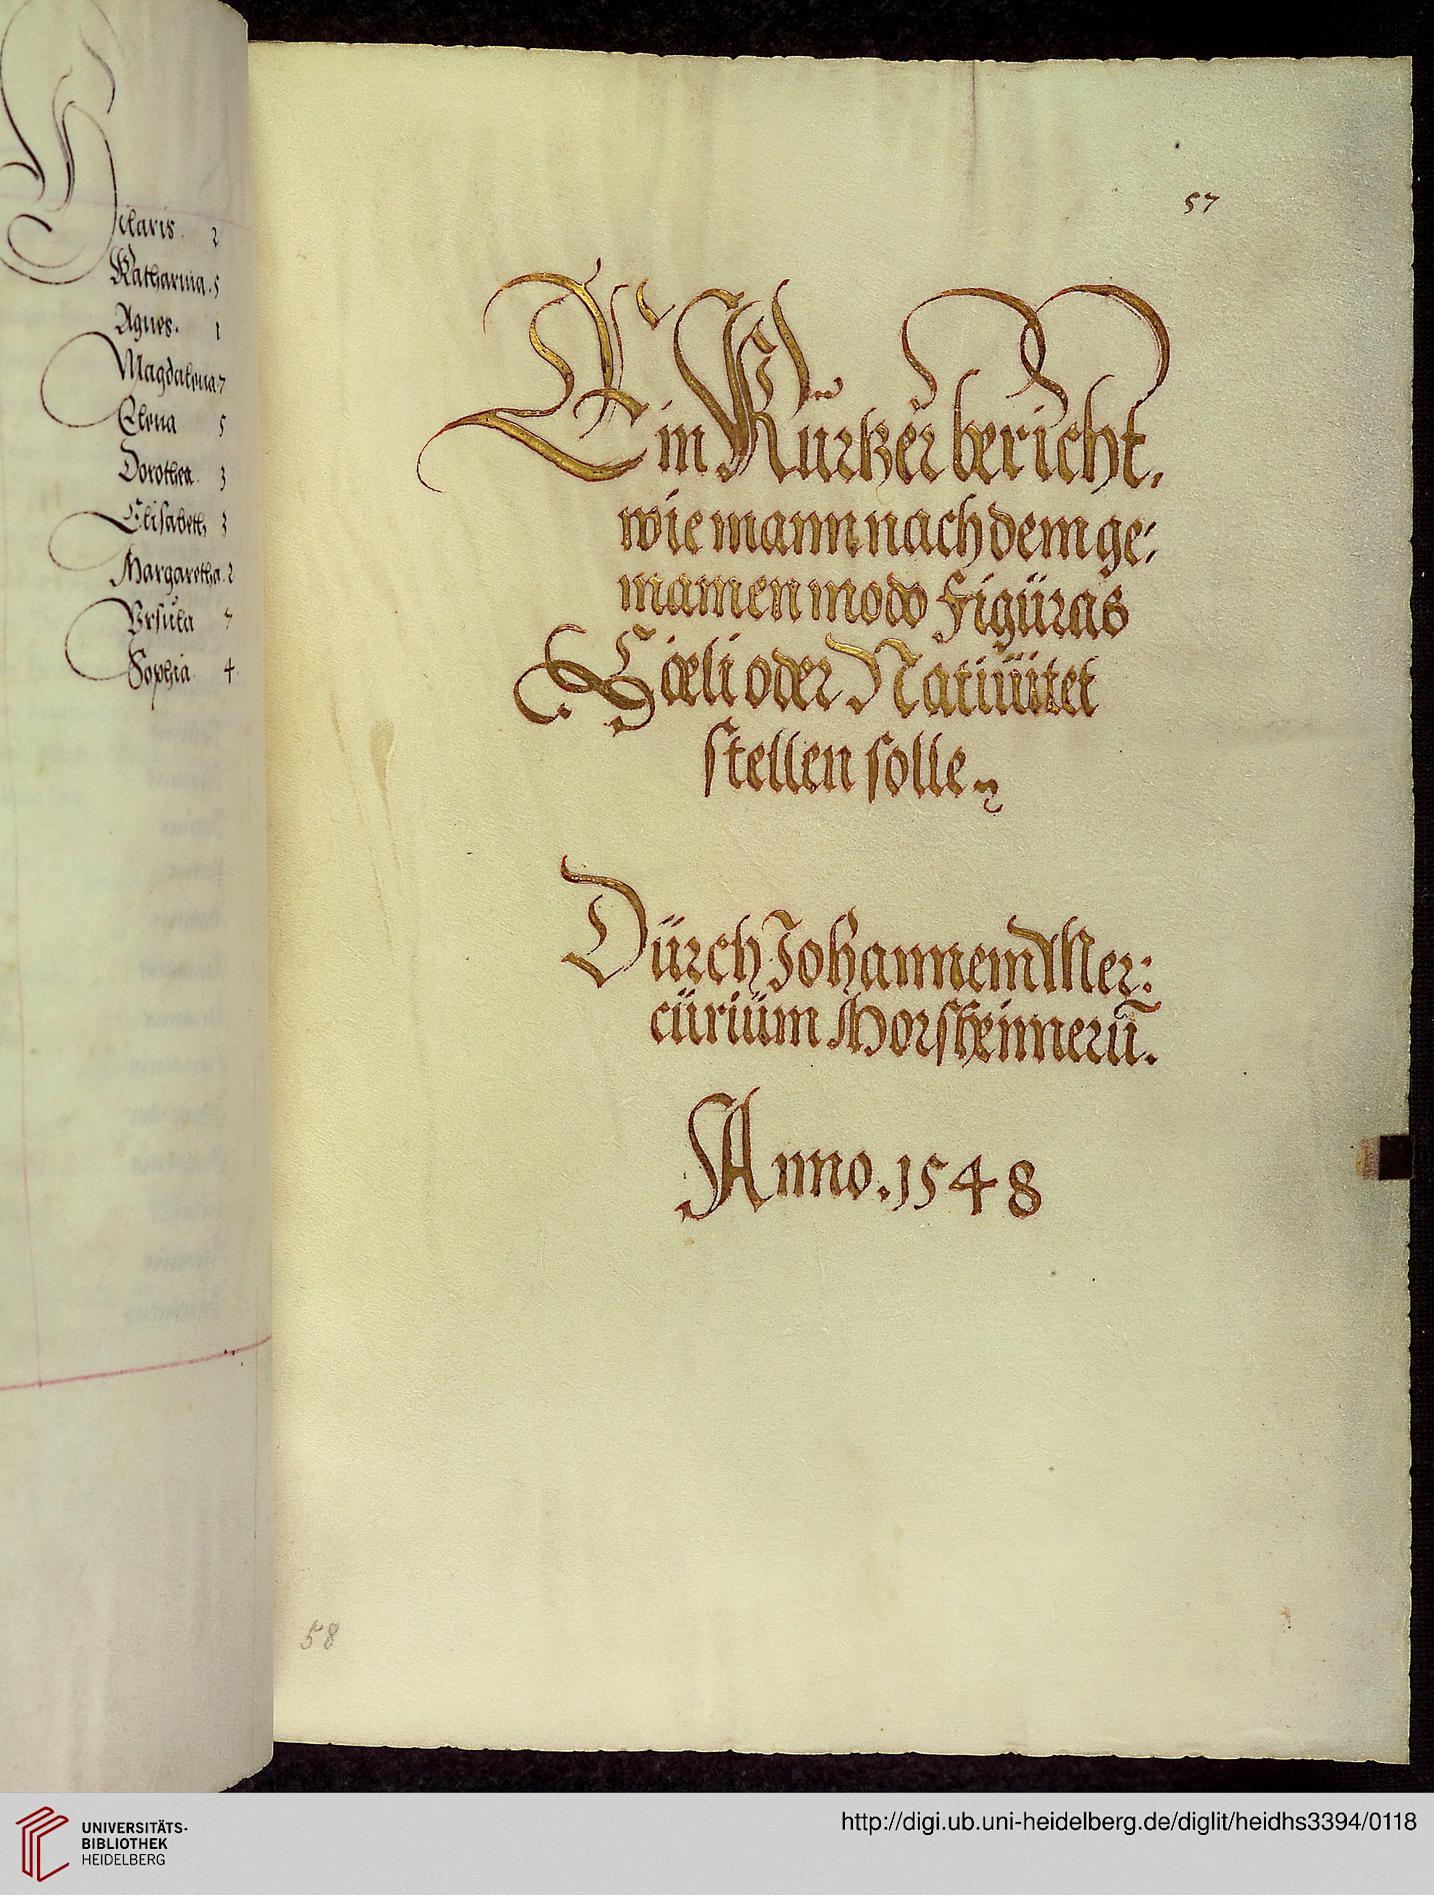 Hilaris. 2
Katharina. 5
Agnes. 1
Magdalena 7
Elena 5
Dorothea. 3
Elisabeth 3
Margaretha. 2
Vrsula 7
Sophia. 4
57
Ein Kürtzer bericht.
wie mann nach dem ge:
mainen modo Figüras
Cœli oder Natiüitet
stellen solle
Dürch Johannem Mer:
cürium Morsheimerū.
Anno. 1548
58
UNIVERSITÄTS-
BIBLIOTHEK
HEIDELBERG
http://digi.ub.uni-heidelberg.de/diglit/heidhs3394/0118